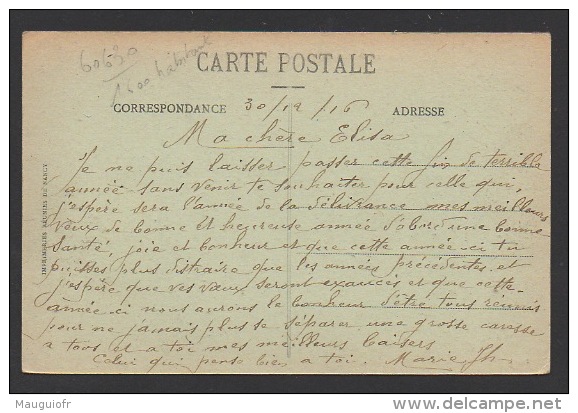 60630
1400 habitant
CARTE POSTALE
CORRESPONDANCE 30/12/16 ADRESSE
Ma chère Elisa
Je ne puis laisser passer cette fin de terrible
année sans venir te souhaiter pour celle qui,
j'espère sera l'année de la délivrance mes meilleurs
vœux de bonne et heureuse année d'abord une bonne
santé, joie et bonheur et que cette année ci tu
puisses plus distraire que les années précédentes, et
j'espère que ves vœux seront exaucés et que cette
année ci nous aurons le bonheur d'être tous réunis
pour ne jamais plus se séparer une grosse caresse
a tous et a toi mes meilleurs baisers
Celui qui pense bien a toi. Marie Jh
IMPRIMERIES RÉUNIES DE NANCY
Mauguiofr
www.delcampe.net